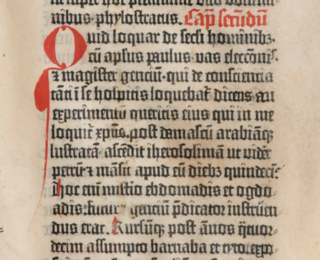 nibus phylostratus. Cap̄ secūdū
Quid loquar de secli hominibȝ.
cū apl̄us paulus: vas electōnis.
⁊ magister genciū· qui de consciencia
tāti ī se hospitis loquebat᷑ dicens. an
experimentū queritis eius qui in me
loquit᷑ xp̄us. post damascū arabiāqȝ
lustratā: ascēdit iherosolimā ut videret
petrū ⁊ māsit apud eū diebȝ quindecī.
Hoc enī misterio ebdomadis et ogdo-
adis: futur᷑ genciū p̄dicator instruen
dus erat. Rursūqȝ post ānos q̄tuor-
decim assumpto barnaba et tyto: expo-